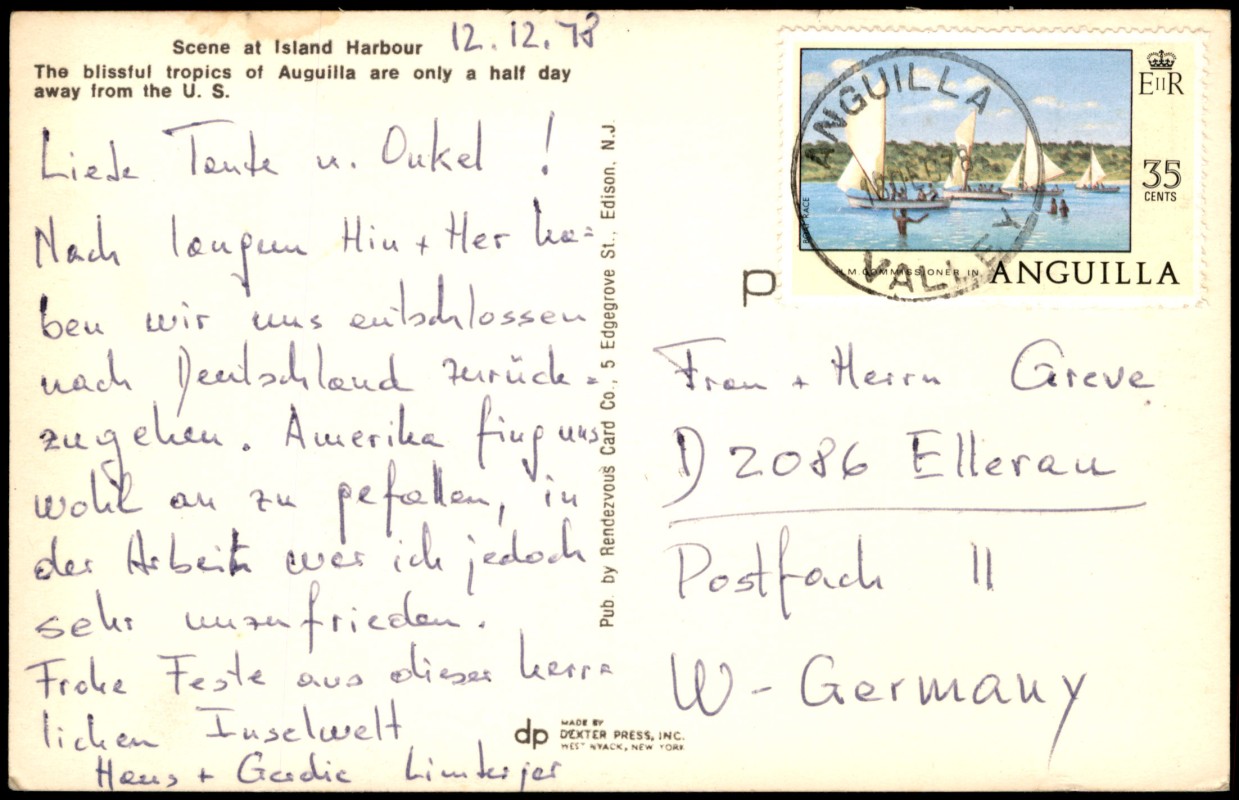 Scene at Island Harbour
12.12.78
The blissful tropics of Auguilla are only a half day
away from the U. S.
Liebe Tante u. Onkel !
Nach langem Hin + Her ha=
ben wir uns entschlossen
nach Deutschland zurück=
zugehen. Amerika fing uns
wohl an zu gefallen, in
der Arbeit war ich jedoch
sehr unzufrieden.
Frohe Feste aus dieser herr=
lichen Inselwelt
Hans +
Pub. by Rendezvous Card Co., 5 Edgegrove St., Edison, N.J.
dp
MADE BY
DEXTER PRESS, INC.
WEST NYACK, NEW YORK
EIIR
35
CENTS
BOAT RACE
COMMISSIONER IN ANGUILLA
ANGUILLA
VALLEY
P
Frau + Herrn Greve
D 2086 Ellerau
Postfach 11
W-Germany